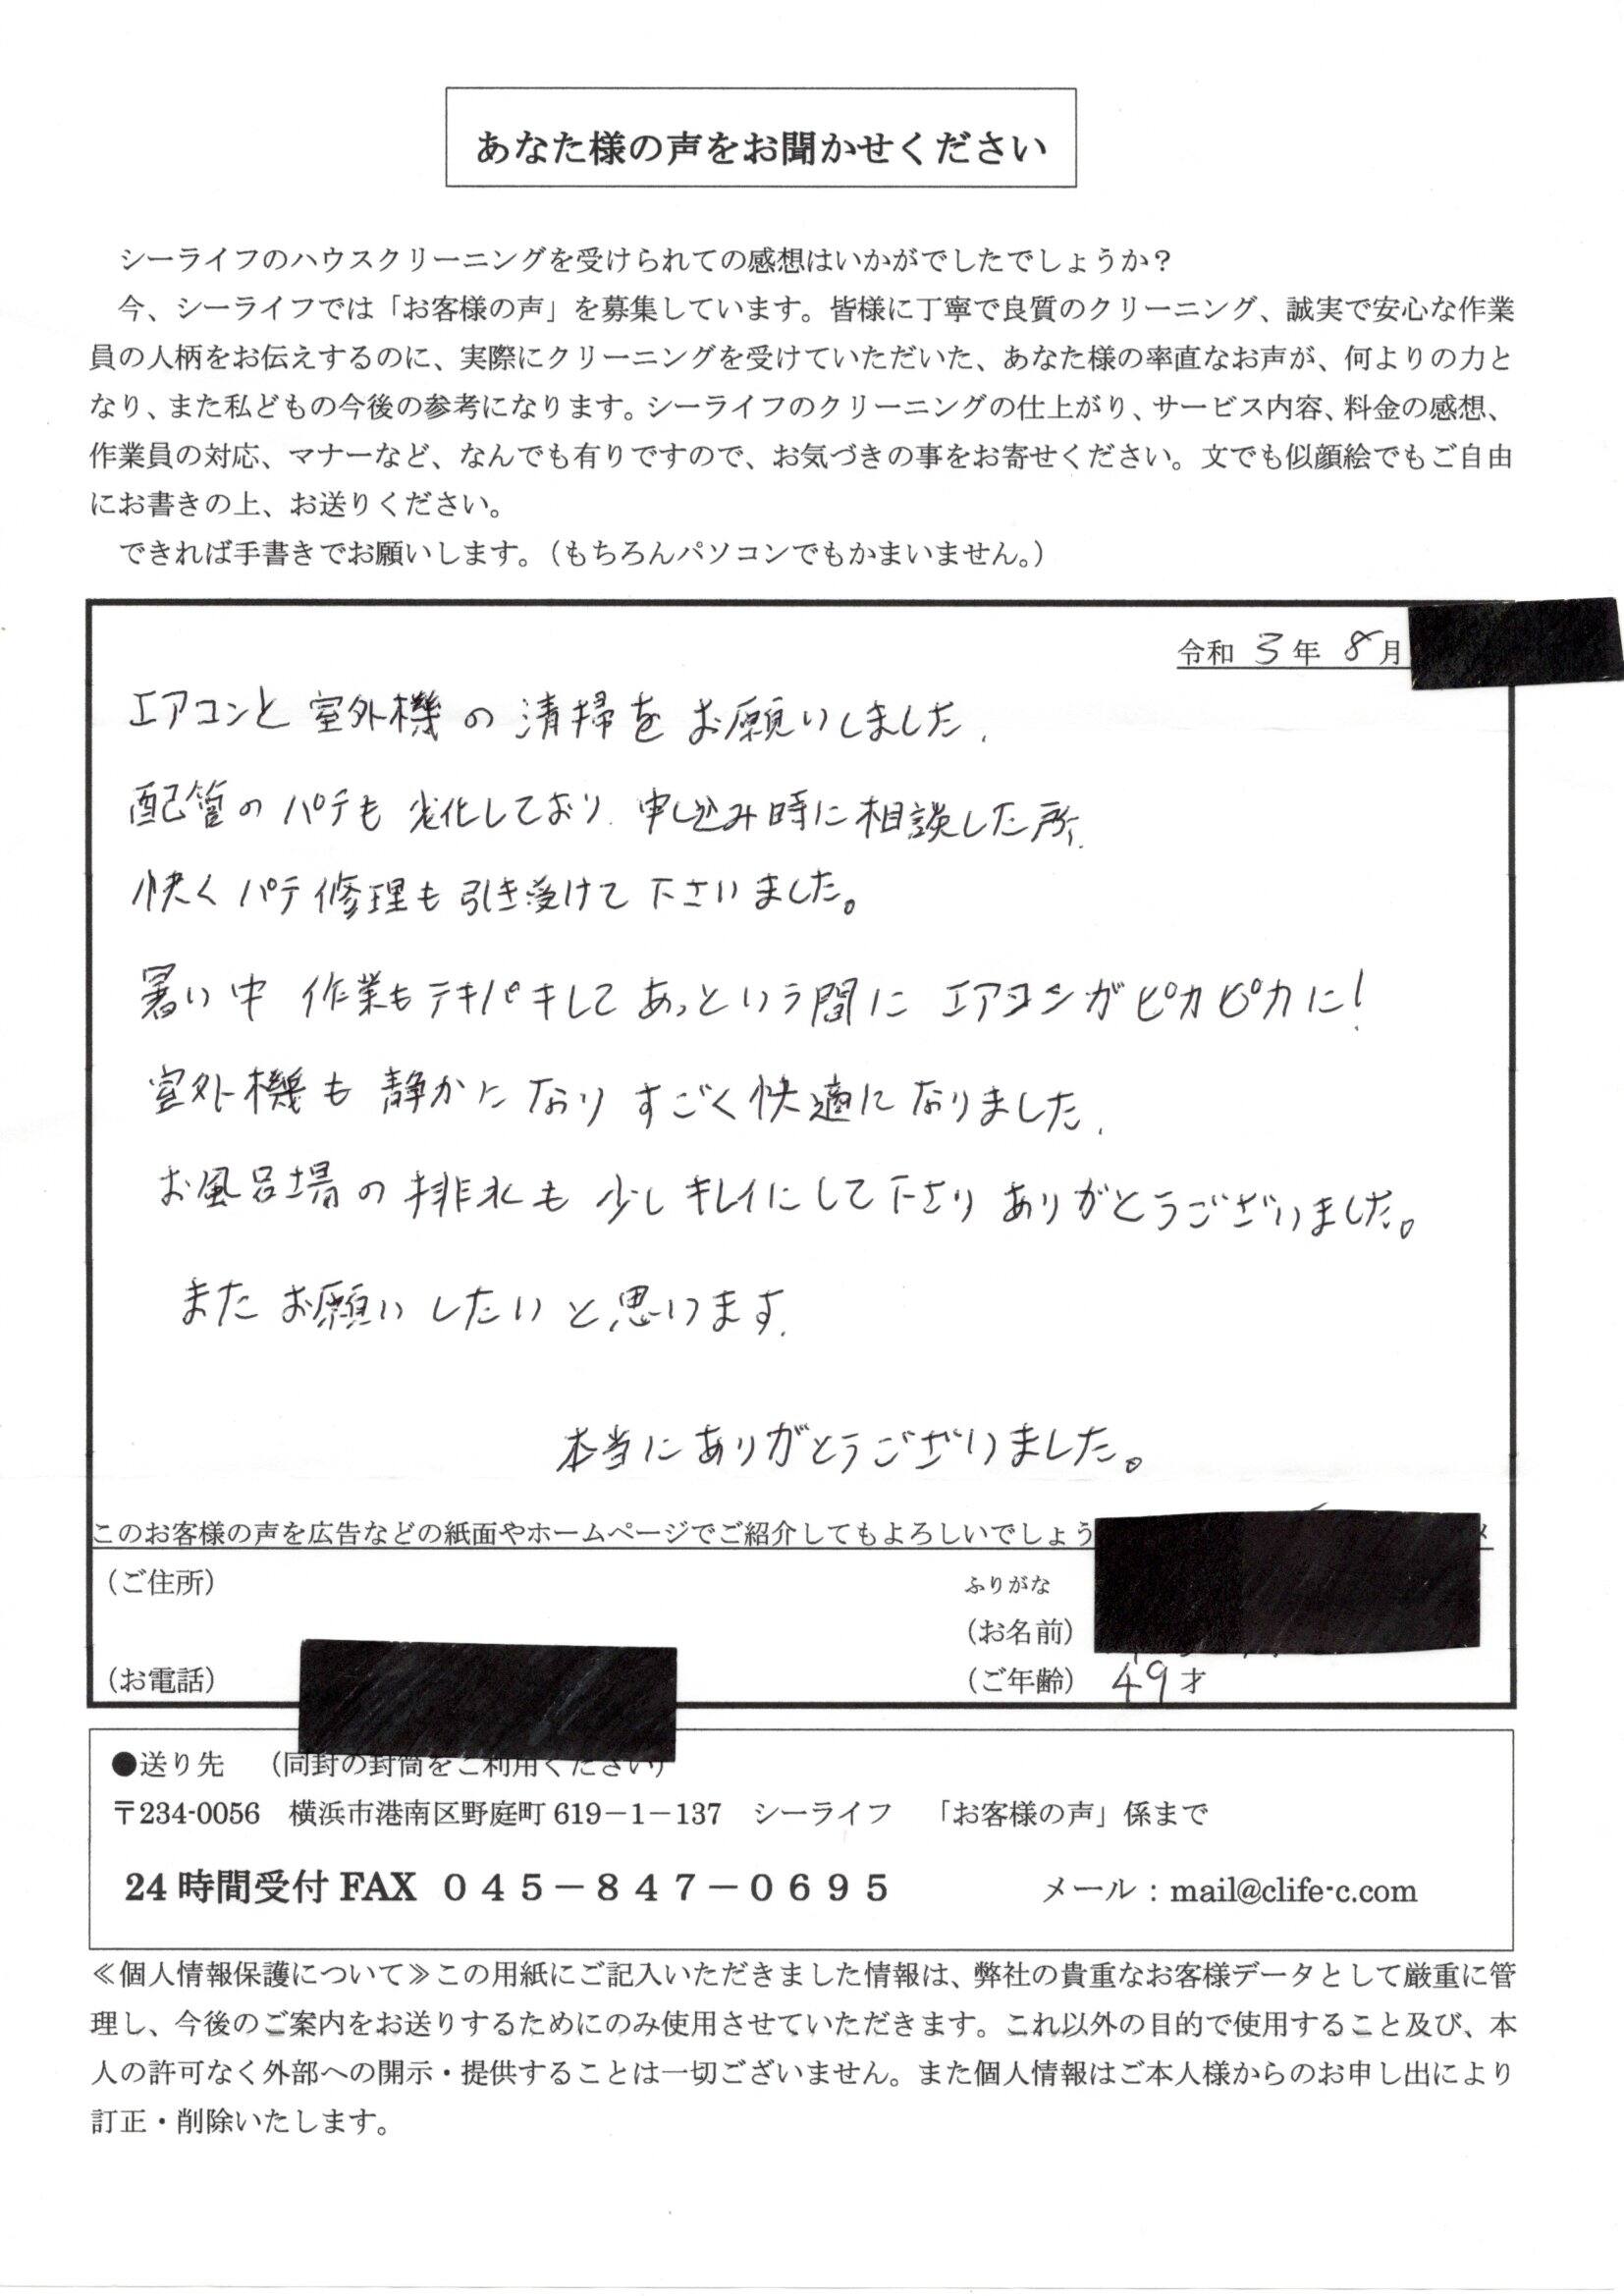 あなた様の声をお聞かせください
シーライフのハウスクリーニングを受けられての感想はいかがでしたでしょうか？
今、シーライフでは「お客様の声」を募集しています。皆様に丁寧で良質のクリーニング、誠実で安心な作業
員の人柄をお伝えするのに、実際にクリーニングを受けていただいた、あなた様の率直なお声が、何よりの力と
なり、また私どもの今後の参考になります。シーライフのクリーニングの仕上がり、サービス内容、料金の感想、
作業員の対応、マナーなど、なんでも有りですので、お気づきの事をお寄せください。文でも似顔絵でもご自由
にお書きの上、お送りください。
できれば手書きでお願いします。（もちろんパソコンでもかまいません。）
令和 3 年 8 月
エアコンと室外機の清掃をお願いしました.
配管のパテも劣化しており、申し込み時に相談した所、
快くパテ修理も引き受けて下さいました。
暑い中 作業もテキパキしてあっという間に エアコンがピカピカに！
室外機も静かになり すごく快適になりました.
お風呂場の排水も少しキレイにして下さり ありがとうございました。
またお願いしたいと思います.
本当にありがとうございました。
このお客様の声を広告などの紙面やホームページでご紹介してもよろしいでしょう
（ご住所）
ふりがな
（お名前）
（お電話）
（ご年齢） 49 才
●送り先 （同封の封筒をご利用ください）
〒234-0056 横浜市港南区野庭町 619－1－137 シーライフ 「お客様の声」係まで
24 時間受付 FAX ０４５－８４７－０６９５ メール：mail@clife-c.com
≪個人情報保護について≫この用紙にご記入いただきました情報は、弊社の貴重なお客様データとして厳重に管
理し、今後のご案内をお送りするためにのみ使用させていただきます。これ以外の目的で使用すること及び、本
人の許可なく外部への開示・提供することは一切ございません。また個人情報はご本人様からのお申し出により
訂正・削除いたします。